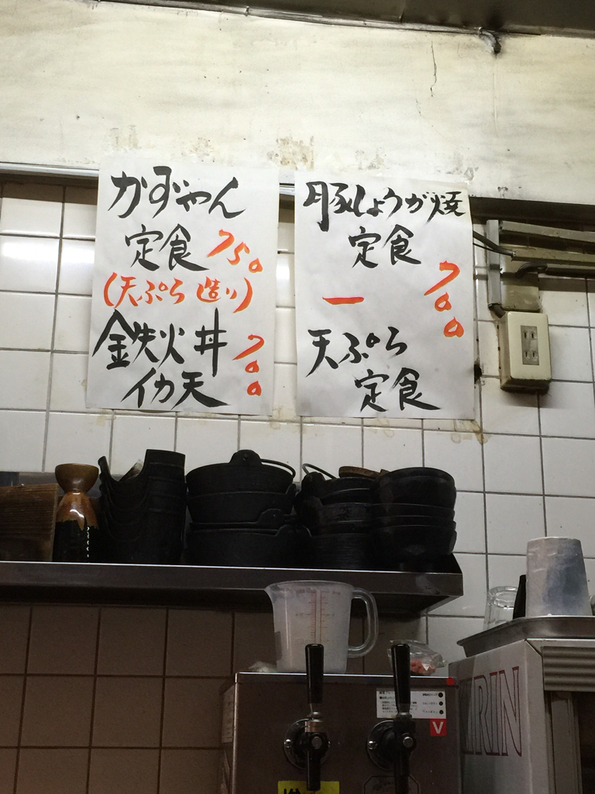 かずやん
定食 750
(天ぷら 造り)
鉄火丼
イカ天 700
豚しょうが焼
定食
700
天ぷら
定食
V
KIRIN